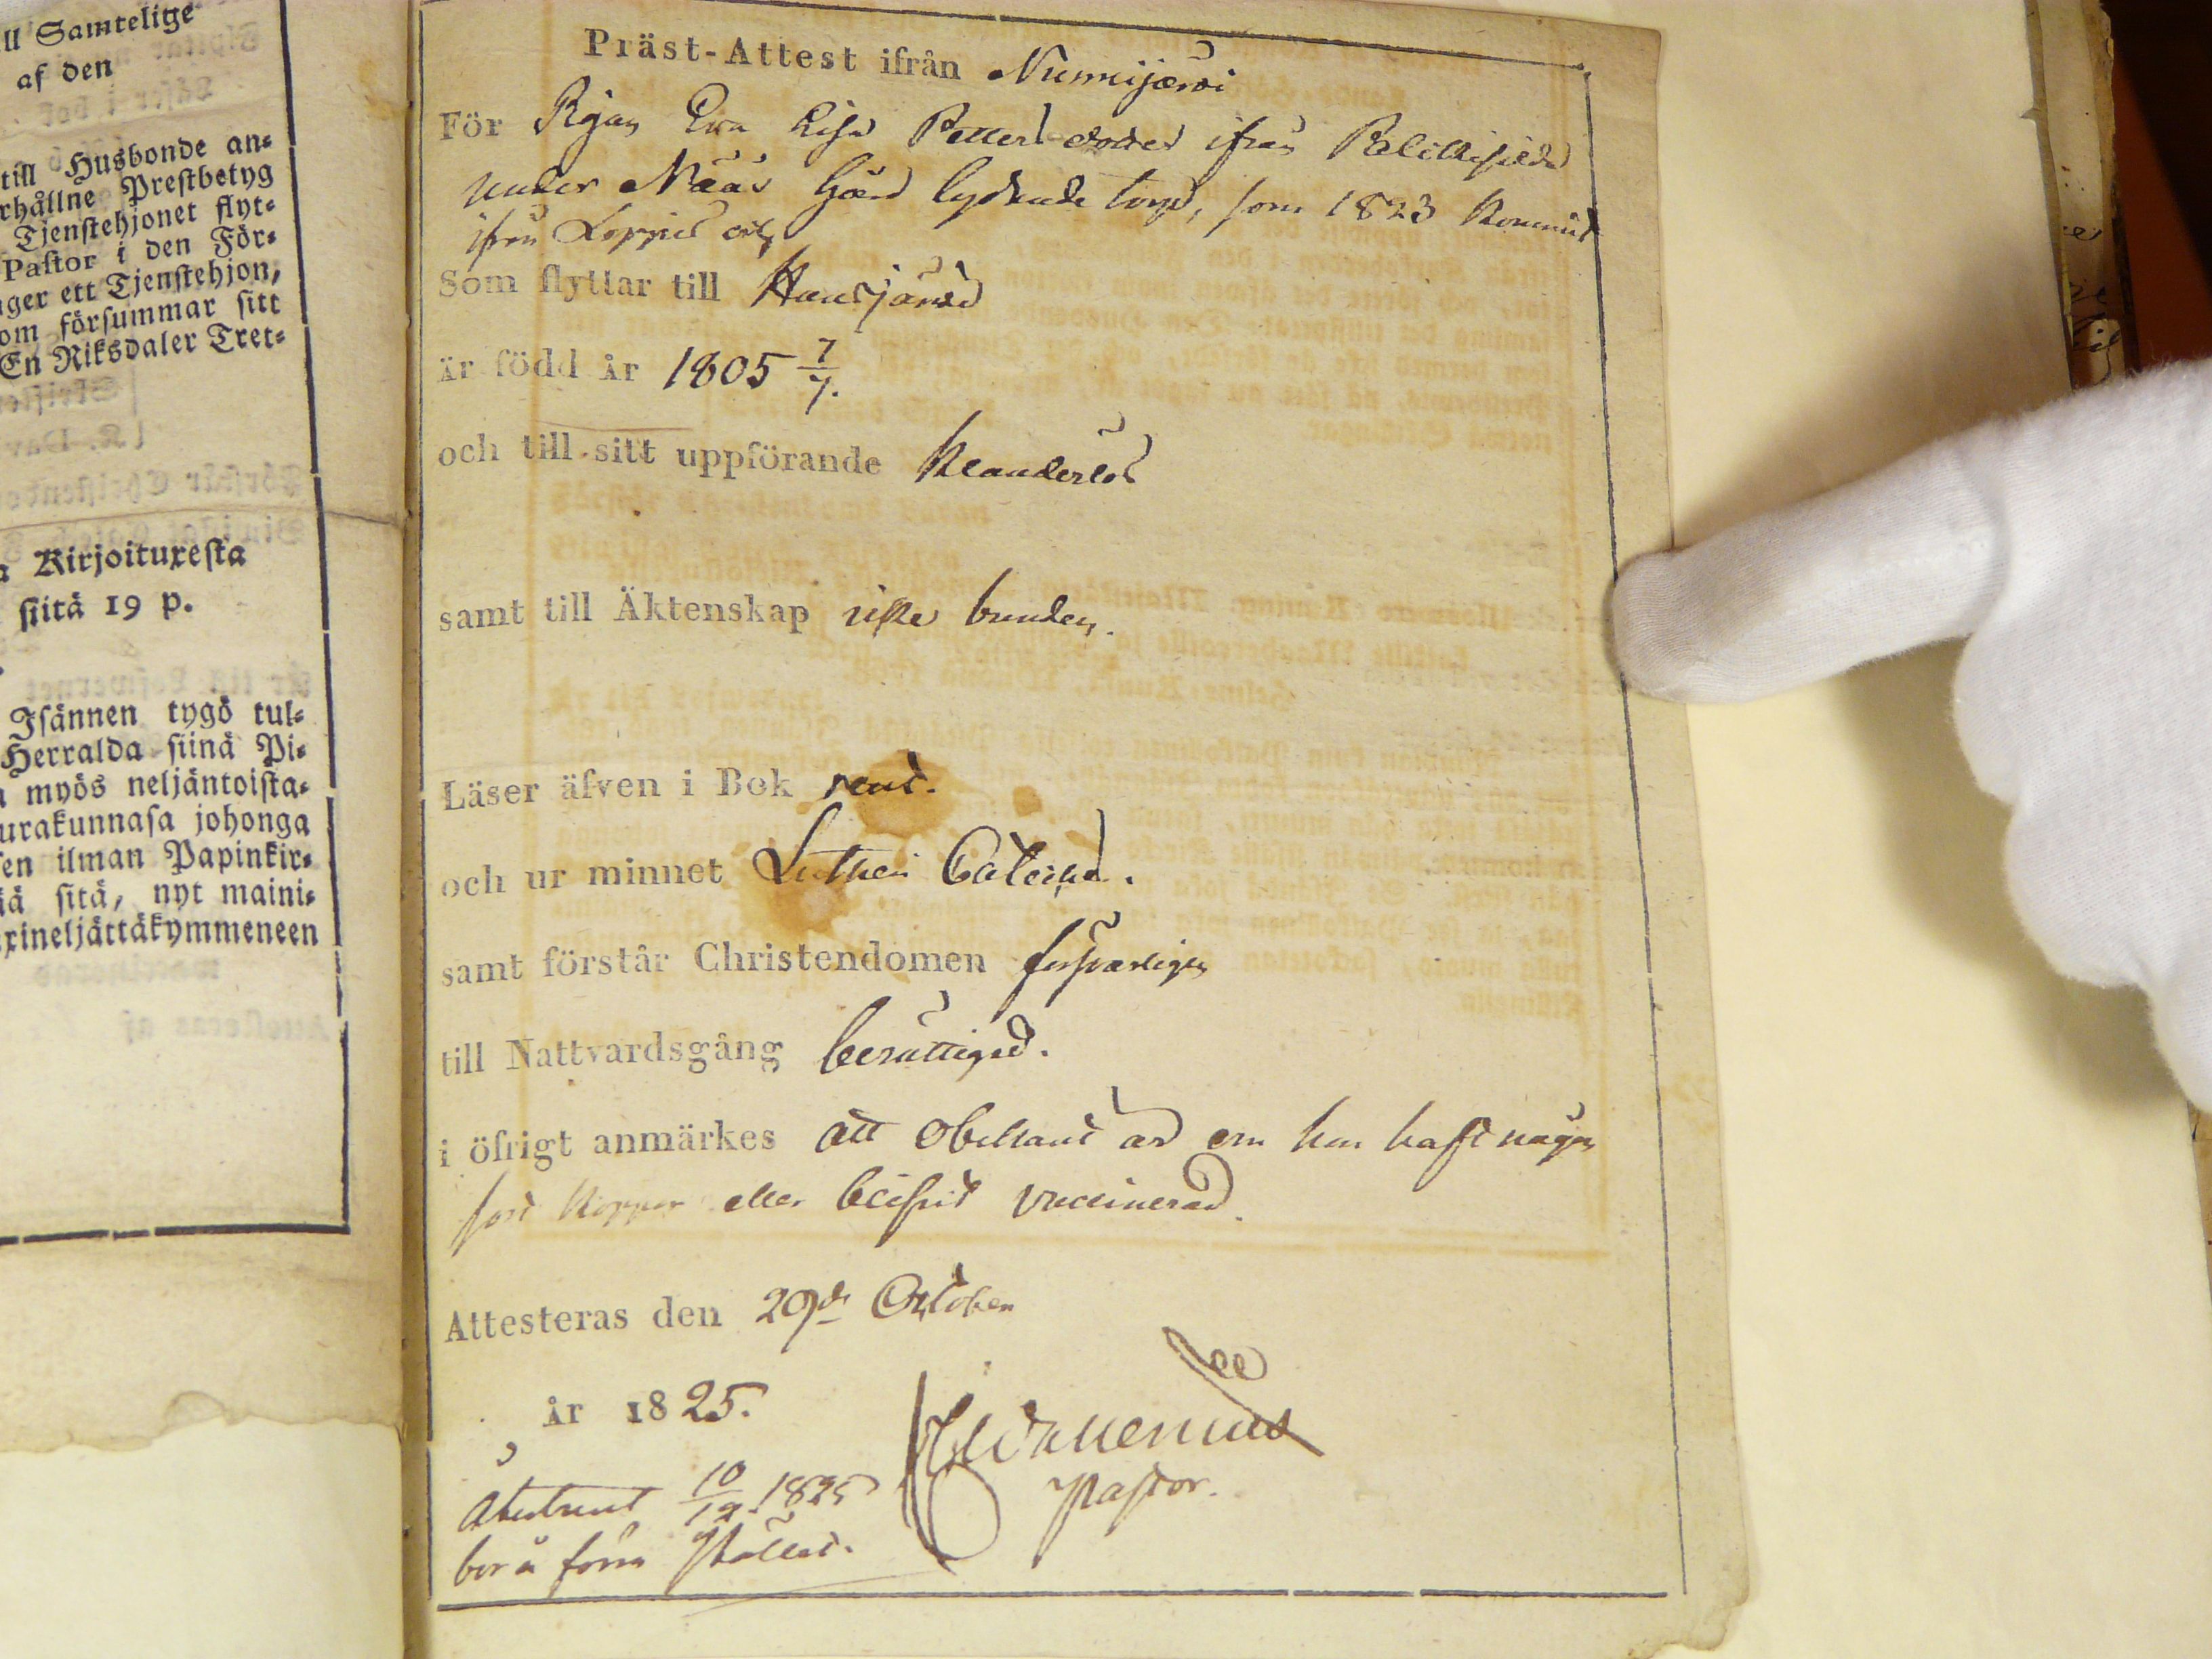 ll Samtelige
af den
till Husbonde an=
rhållne Prestbetyg
Tjenstehjonet flyt=
Pastor i den För=
ager ett Tjenstehjon,
om försummar sitt
En Riksdaler Tret=
a Kirjoituxesta
siitä 19 p.
Isännen tygö tul=
Herralda siinä Pi=
myös neljäntoista=
urakunnasa johonga
en ilman Papinkir=
iä sitä, nyt maini=
xineljättäkymmeneen
Präst-Attest ifrån Nummijärvi
För Pigan Eva Lisa Petters dotter ifrån
under Nääs Gård lydande torp, som 1823 kommit
ifrån Loppis och
Som flyttar till Hausjärvi
är född år 1805 7/7.
och till sitt uppförande klanderlös
samt till Äktenskap icke bunden.
Läser äfven i Bok rent.
och ur minnet Lutheri Cateches.
samt förstår Christendomen försvarligen
till Nattvardsgång berättigad.
i öfrigt anmärkes att obekant är om hon haft någon
sort koppor eller blifvit vaccinerad.
Attesteras den 29de October
år 1825.
Pastor.
10/12 1825
bor å förra stället.